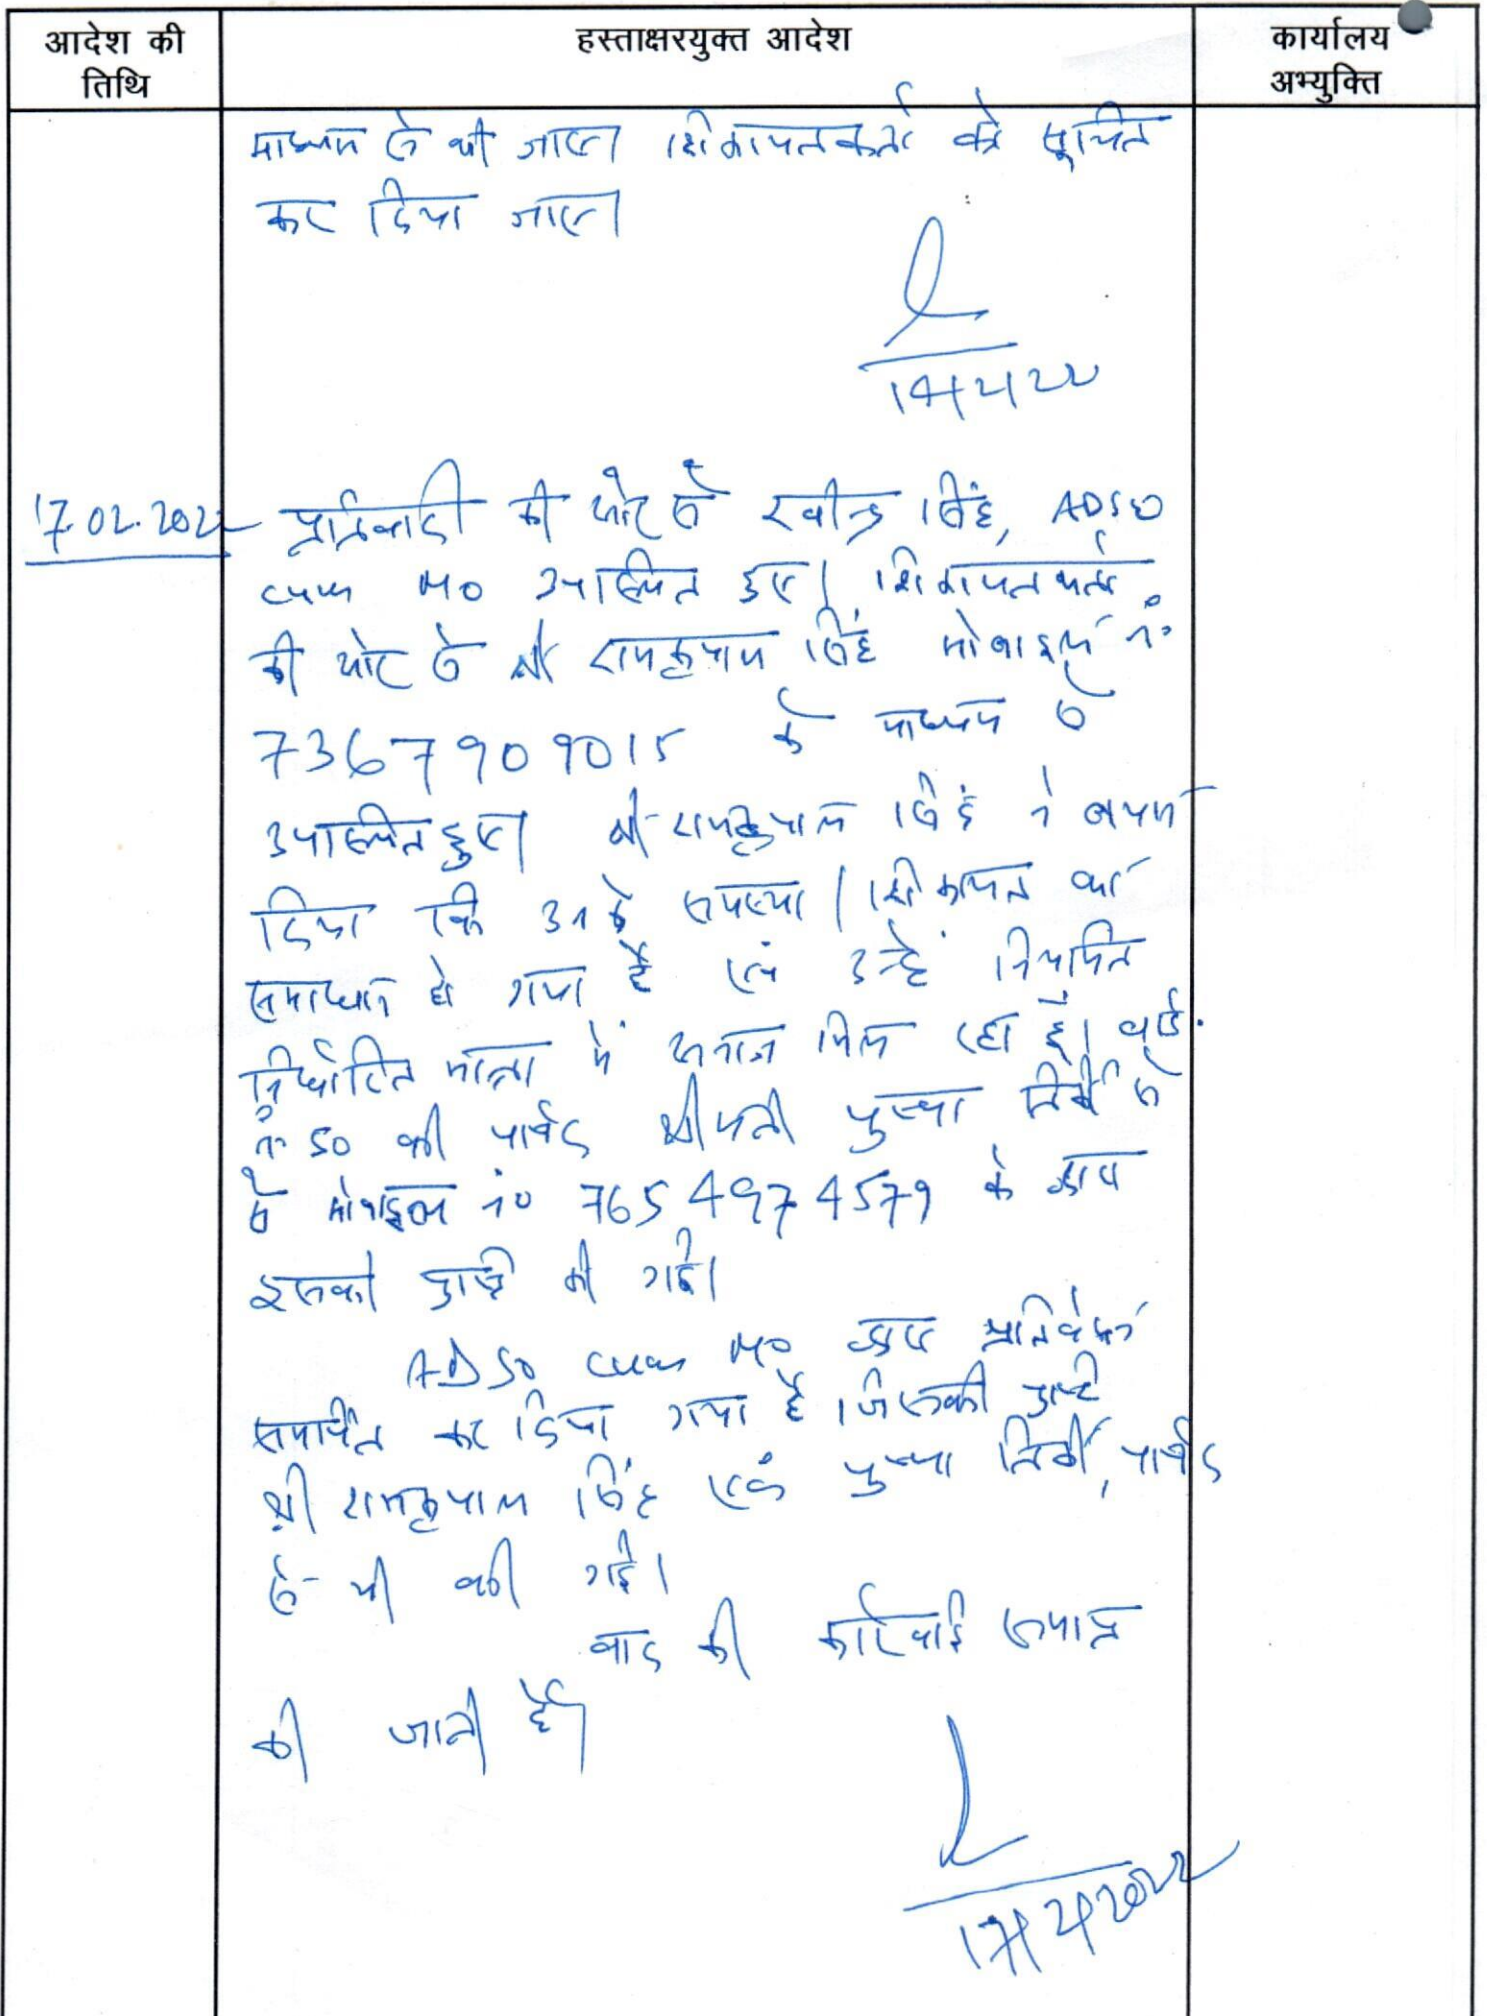 आदेश की
तिथि
हस्ताक्षरयुक्त आदेश
कार्यालय
अभ्युक्ति
माध्यम से की जाए। शिकायतकर्ता को सूचित
कर दिया जाए।
17.02.2022
प्रतिवादी की ओर से रवीन्द्र सिंह, ADSO
cum MO उपस्थित हुए। शिकायतकर्ता
की ओर से श्री रामकृपाल सिंह मोबाइल नं०
7367909015 के माध्यम से
उपस्थित हुए। श्री रामकृपाल सिंह ने बयान
दिया कि उनके समस्या/शिकायत का
समाधान हो गया है एवं उन्हें नियमित
निर्धारित मात्रा में अनाज मिल रहा है। वार्ड
नं० 50 की पार्षद श्रीमती पुष्पा तिर्की से
मोबाइल नं० 7654974579 के द्वारा
इसकी पुष्टि की गई।
ADSO cum MO द्वारा प्रतिवेदन
समर्पित कर दिया गया है जिसकी पुष्टि
श्री रामकृपाल सिंह एवं पुष्पा तिर्की, पार्षद
से भी की गई।
वाद की कार्रवाई समाप्त
की जाती है।